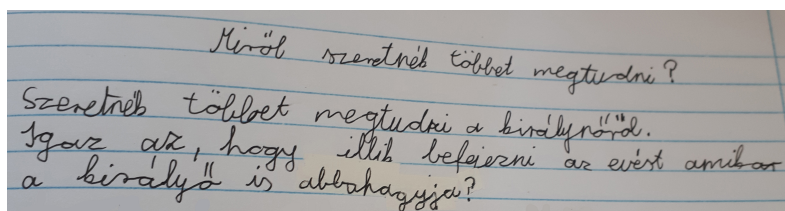 Miről szeretnék többet megtudni?
Szeretnék többet megtudni a királynőről.
Igaz az, hogy illik befejezni az evést amikor
a királyő is abbahagyja?